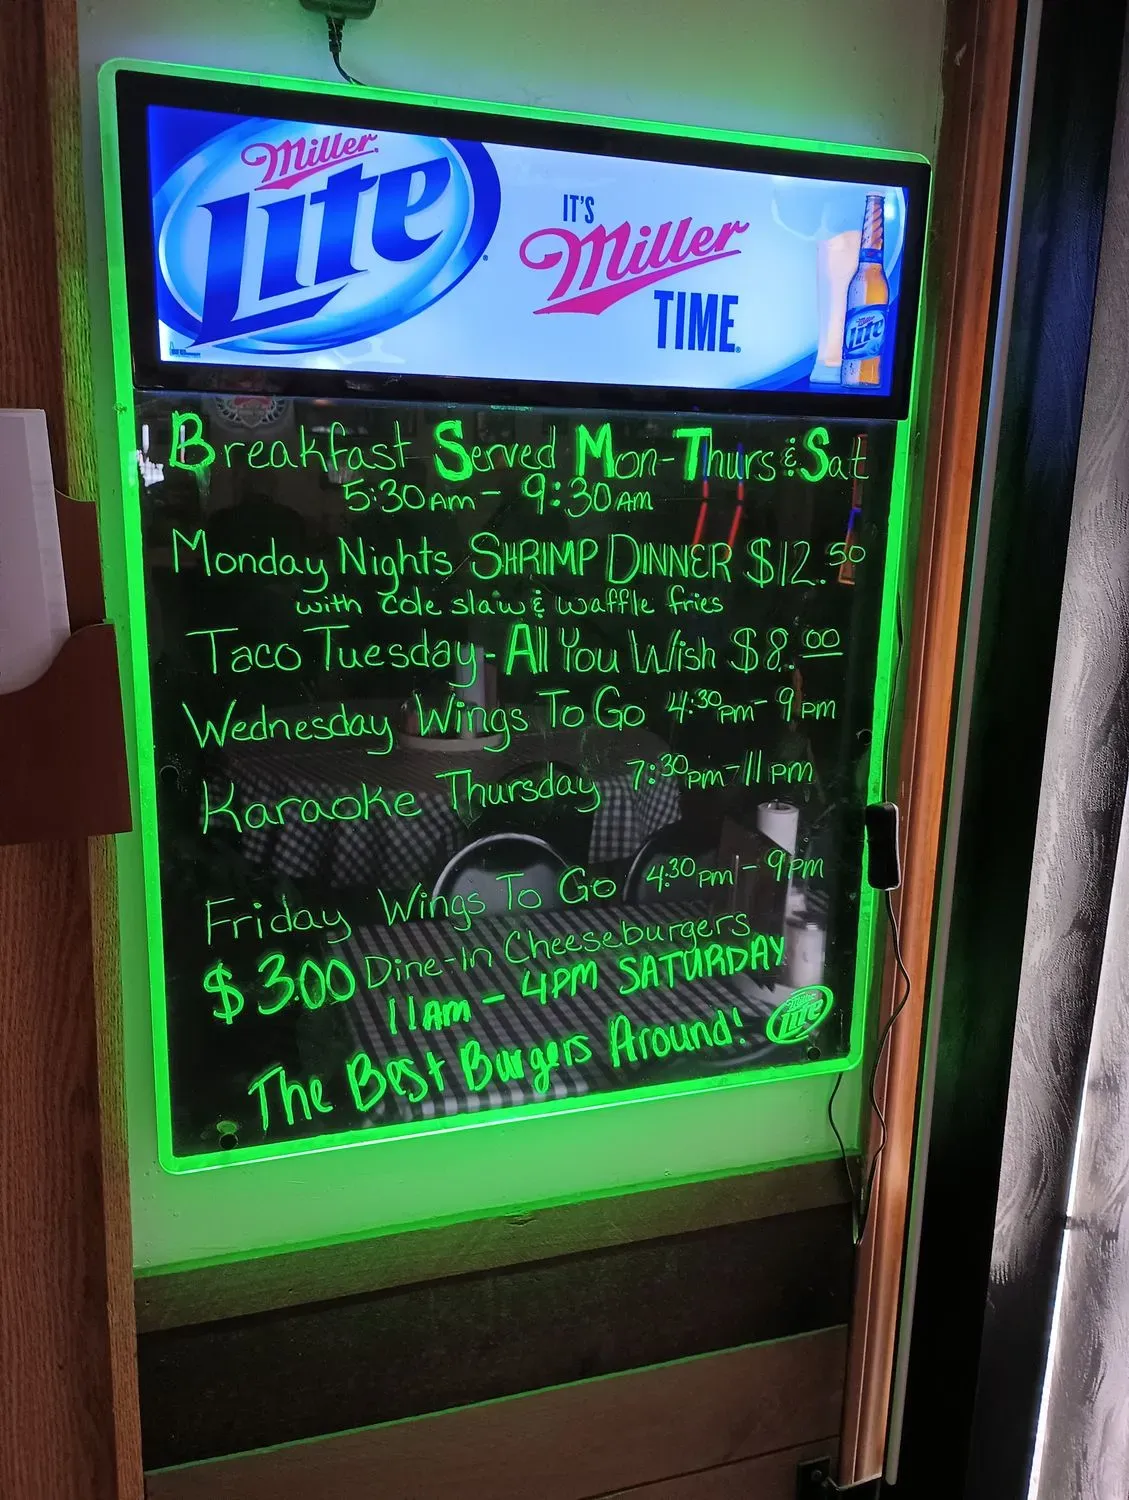 Miller
Lite
IT'S
Miller
TIME
Lite
Breakfast Served Mon-Thurs & Sat
5:30AM - 9:30AM
Monday Nights SHRIMP DINNER $12.50
with cole slaw & waffle fries
Taco Tuesday - All You Wish $8.00
Wednesday Wings To Go 4:30pm - 9pm
Karaoke Thursday 7:30pm - 11pm
Friday Wings To Go 4:30pm - 9pm
$3.00 Dine-In Cheeseburgers
11AM - 4PM SATURDAY
The Best Burgers Around!
Miller
Lite